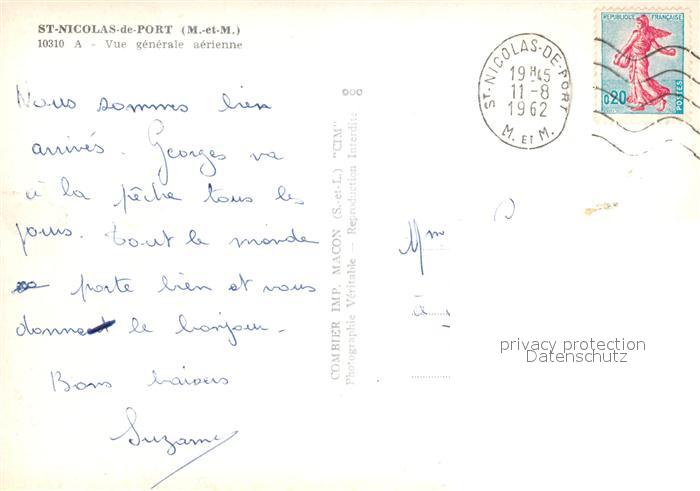 ST-NICOLAS-de-PORT (M.-et-M.)
10310 A - Vue générale aérienne
Nous sommes bien
arrivés. Georges va
à la pêche tous les
jours. Tout le monde
se porte bien et vous
donnent le bonjour.
Bons baisers
Suzanne
COMBIER IMP. MACON (S.-et-L.) "CIM"
Photographie Véritable — Reproduction Interdite
ST-NICOLAS-DE-PORT
19H45
11-8
1962
M. ET M.
REPUBLIQUE FRANÇAISE
0,20
POSTES
Mme
à
privacy protection
Datenschutz